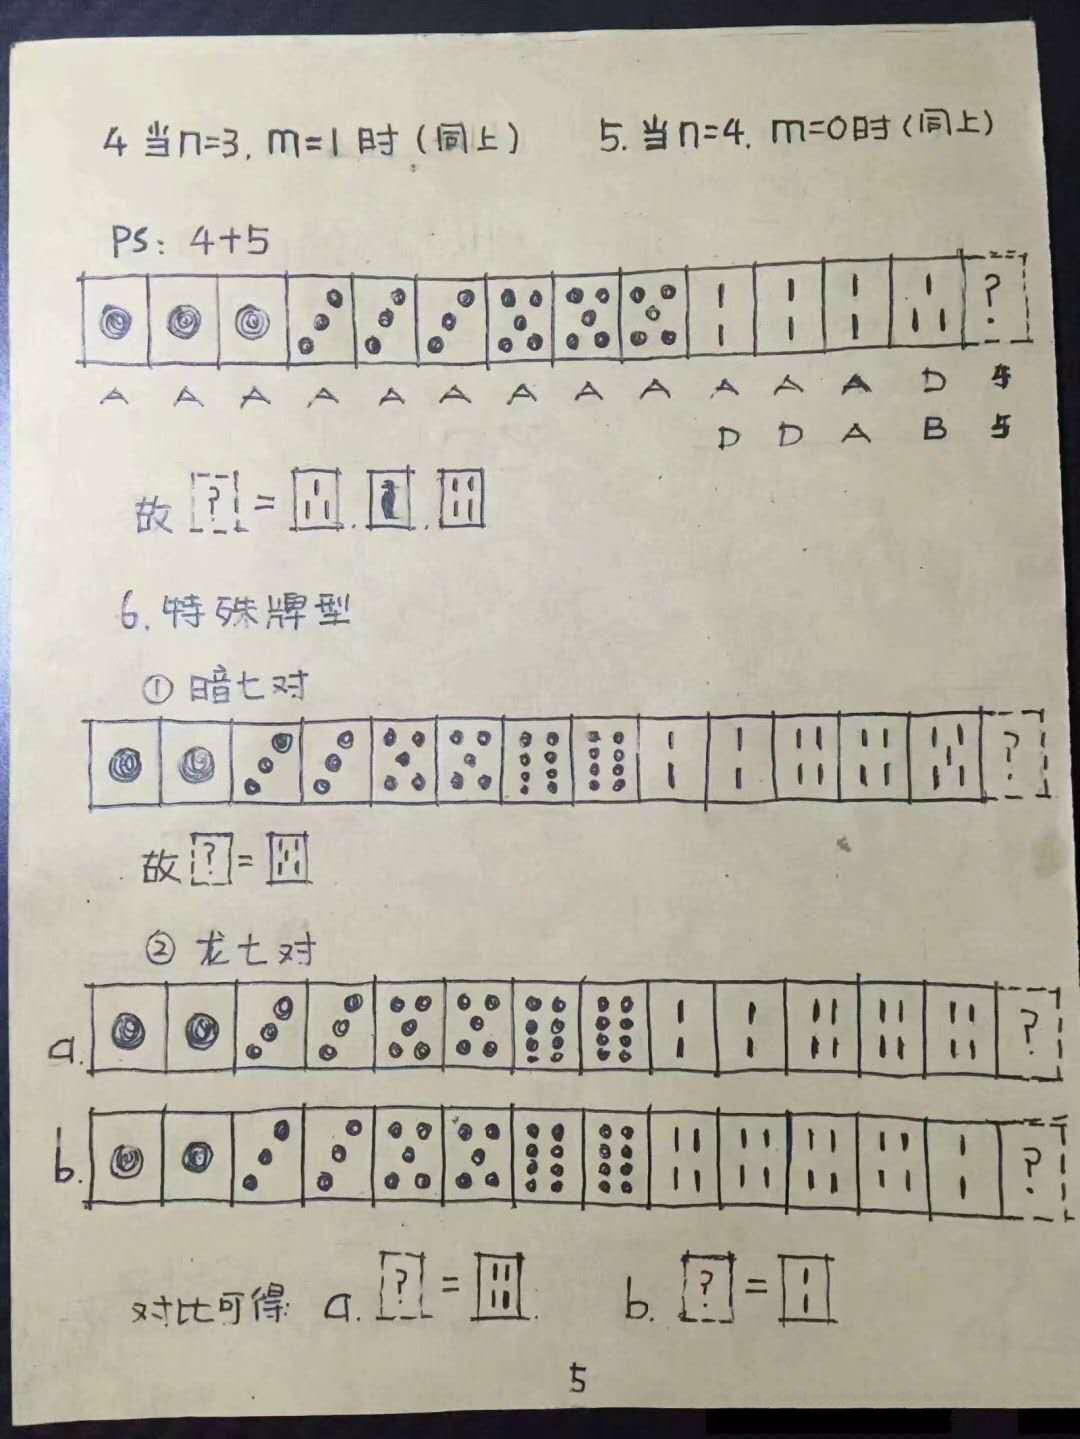 4 当n=3, m=1时(同上) 5. 当n=4, m=0时(同上)
PS: 4+5
?
A A A A A A A A A A A A D 4
D D A B 5
故 ? = . .
6. 特殊牌型
① 暗七对
?
故 ? =
② 龙七对
a. ?
b. ?
对比可得: a. ? = . b. ? =
5